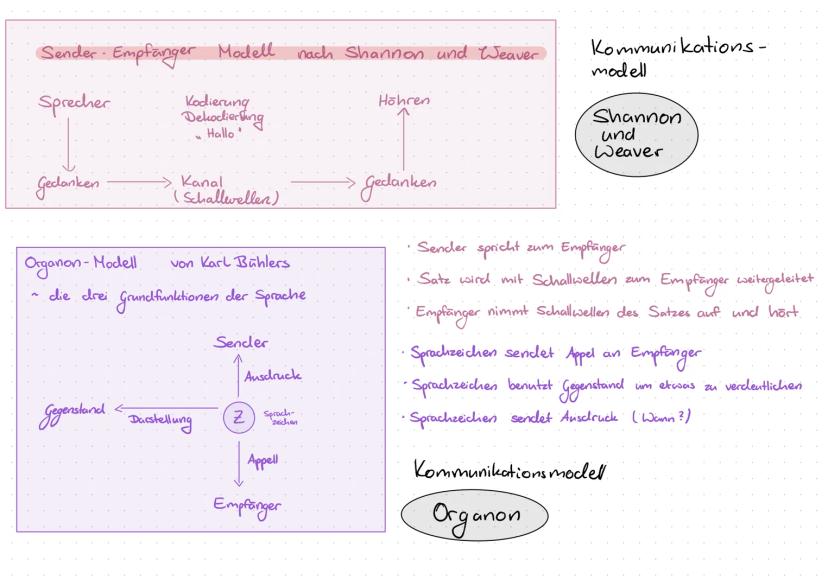 Sender-Empfänger Modell nach Shannon und Weaver
Sprecher
Kodierung
Dekodierung
"Hallo"
Höhren
Gedanken
Kanal
(Schallwellen)
Gedanken
Kommunikations-
modell
Shannon
und
Weaver
Organon-Modell von Karl Bühlers
~ die drei Grundfunktionen der Sprache
Sender
Ausdruck
Gegenstand
Darstellung
Z
Sprach-
zeichen
Appell
Empfänger
· Sender spricht zum Empfänger
· Satz wird mit Schallwellen zum Empfänger weitergeleitet
· Empfänger nimmt Schallwellen des Satzes auf und hört
· Sprachzeichen sendet Appel an Empfänger
· Sprachzeichen benutzt Gegenstand um etwas zu verdeutlichen
· Sprachzeichen sendet Ausdruck (Wann?)
Kommunikationsmodell
Organon